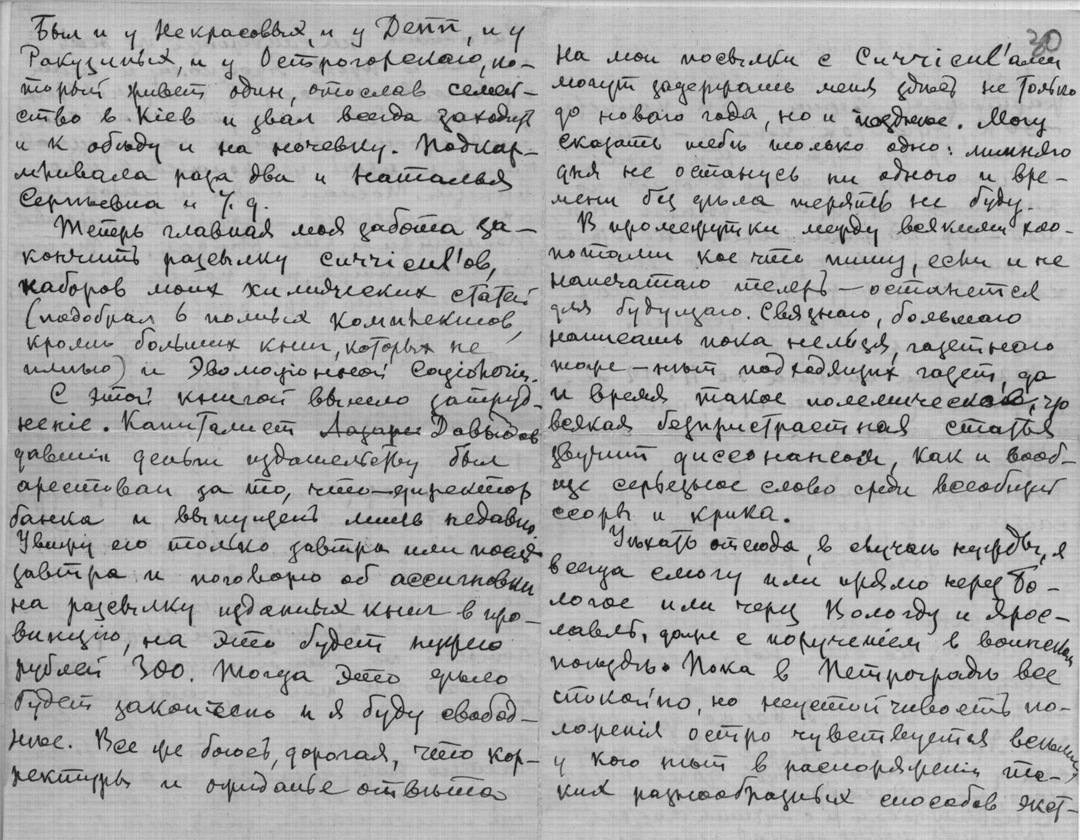 Был и у Некрасовых, и у Депп, и у
Ракузиных, и у Острогорскаго, ко-
торый живет один, отослав семей-
ство в Кіев и звал всегда заходить
и к обѣду и на ночевку. Подкар-
мливала раза два и Наталья
Сергѣевна и т. д.
Теперь главная моя забота за-
кончить разсылку
наборов моих химических статей
(подобрал 6 полных комплектов,
кромѣ больших книг, которых не
) и Эволюціонной Соціологіи.
С этой книгой вышло затруд-
неніе. Капиталист Лазарь Давыдов
давшій деньги издательству был
арестован за то, что директор
банка и выпущен лишь недавно.
Увижу его только завтра или послѣ
завтра и поговорю об ассигновкѣ
на разсылку изданных книг в про-
винцію, на это будет нужно
рублей 300. Тогда это дѣло
будет закончено и я буду свобод-
нѣе. Все же боюсь, дорогая, что кор-
ректуры и ожиданье отвѣта
30
на мои посылки с
могут задержать меня здѣсь не только
до новаго года, но и позднѣе. Могу
сказать тебѣ только одно: лишняго
дня не останусь ни одного и вре-
мени без дѣла терять не буду.
В промежутки между всякими хло-
потами кое что пишу, если и не
напечатаю теперь — останется
для будущаго. Связнаго, большаго
написать пока нельзя, газетнаго
тоже — нѣт подходящих газет, да
и время такое полемическое, что
всякая безпристрастная статья
звучит диссонансом, как и вооб-
ще серьезное слово среди всеобщей
ссоры и крика.
Уѣхать отсюда, в случаѣ нужды, я
всегда смогу или прямо через Бо-
логое или через Вологду и Яро-
славль, даже с порученіем в воинском
поѣздѣ. Пока в Петроградѣ все
спокойно, но неустойчивость по-
ложенія остро чувствуется всѣми,
у кого нѣт в распоряженіи та-
ких разнообразных способов экст-